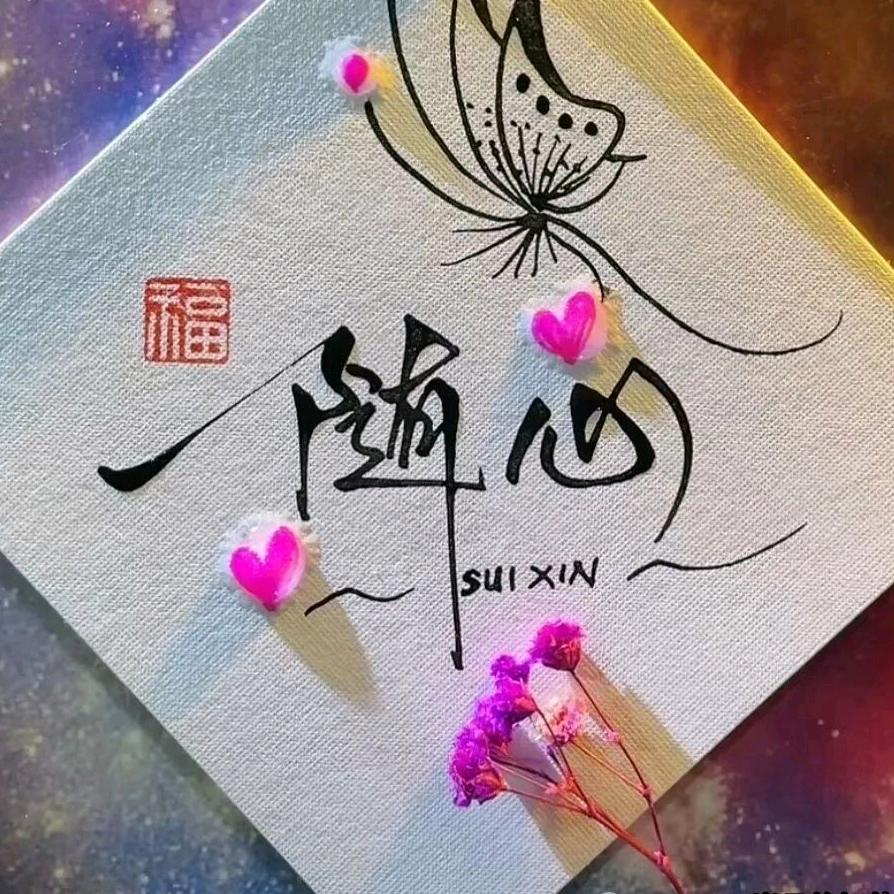 福
随心
SUI XIN